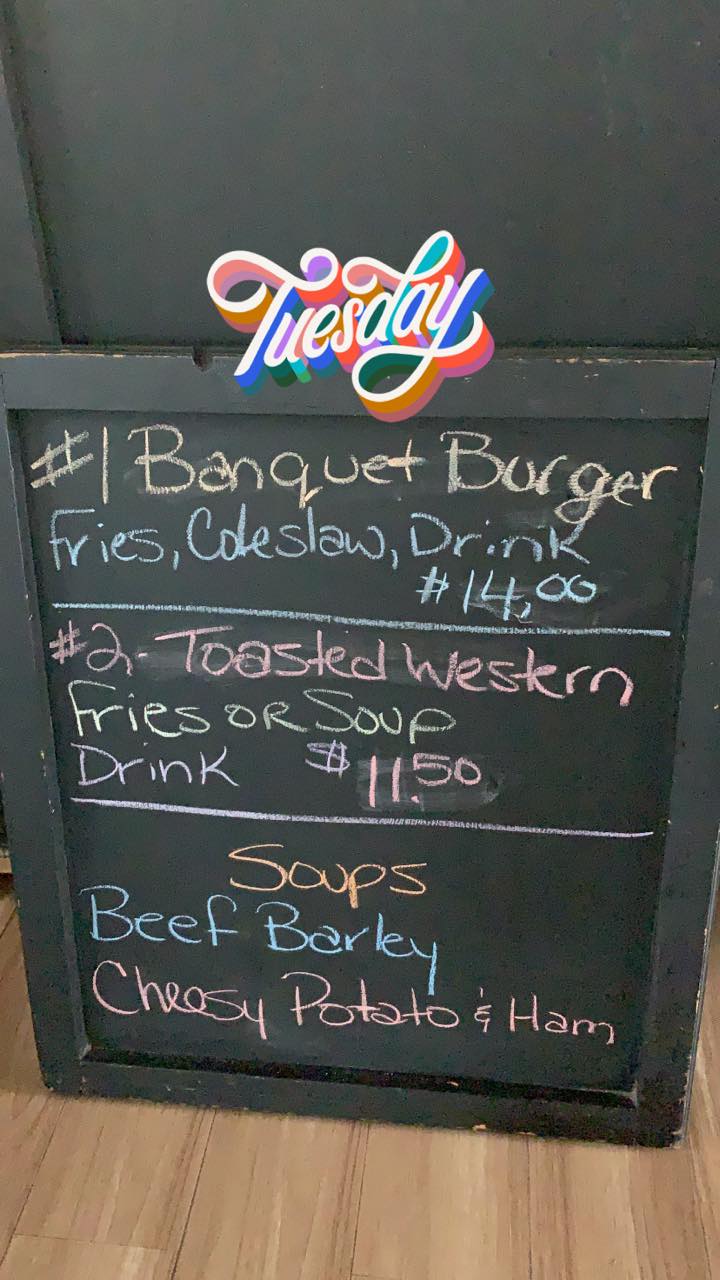 Tuesday
#1 Banquet Burger
Fries, Coleslaw, Drink
$14.00
#2- Toasted Western
Fries OR Soup
Drink $11.50
Soups
Beef Barley
Cheesy Potato & Ham